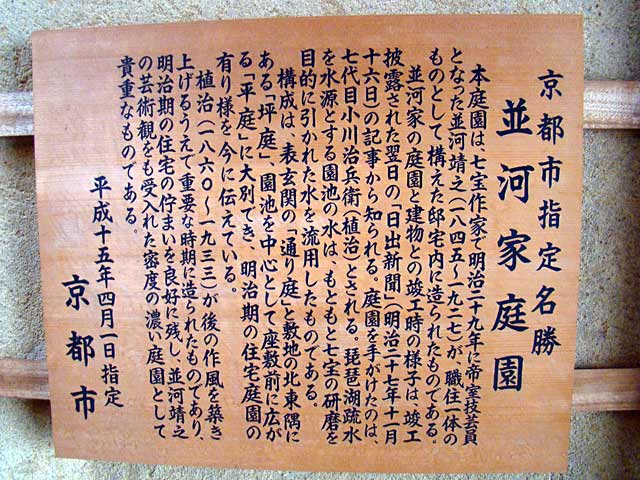 京都市指定名勝
並河家庭園
本庭園は、七宝作家で明治二十九年に帝室技芸員
となった並河靖之(一八四五〜一九二七)が、職住一体の
ものとして構えた邸宅内に造られたものである。
並河家の庭園と建物との竣工時の様子は、竣工
披露された翌日の「日出新聞」(明治二十七年十一月
十六日)の記事から知られる。庭園を手がけたのは、
七代目小川治兵衛(植治)とされる。琵琶湖疏水
を水源とする園池の水は、もともと七宝の研磨を
目的に引かれた水を流用したものである。
構成は、表玄関の「通り庭」と敷地の北東隅に
ある「坪庭」、園池を中心として座敷前に広が
る「平庭」に大別でき、明治期の住宅庭園の
有り様を今に伝えている。
植治(一八六〇〜一九三三)が後の作風を築き
上げるうえで重要な時期に造られたものであり、
明治期の住宅の佇まいを良好に残し、並河靖之
の芸術観をも受入れた密度の濃い庭園として
貴重なものである。
平成十五年四月一日指定
京都市